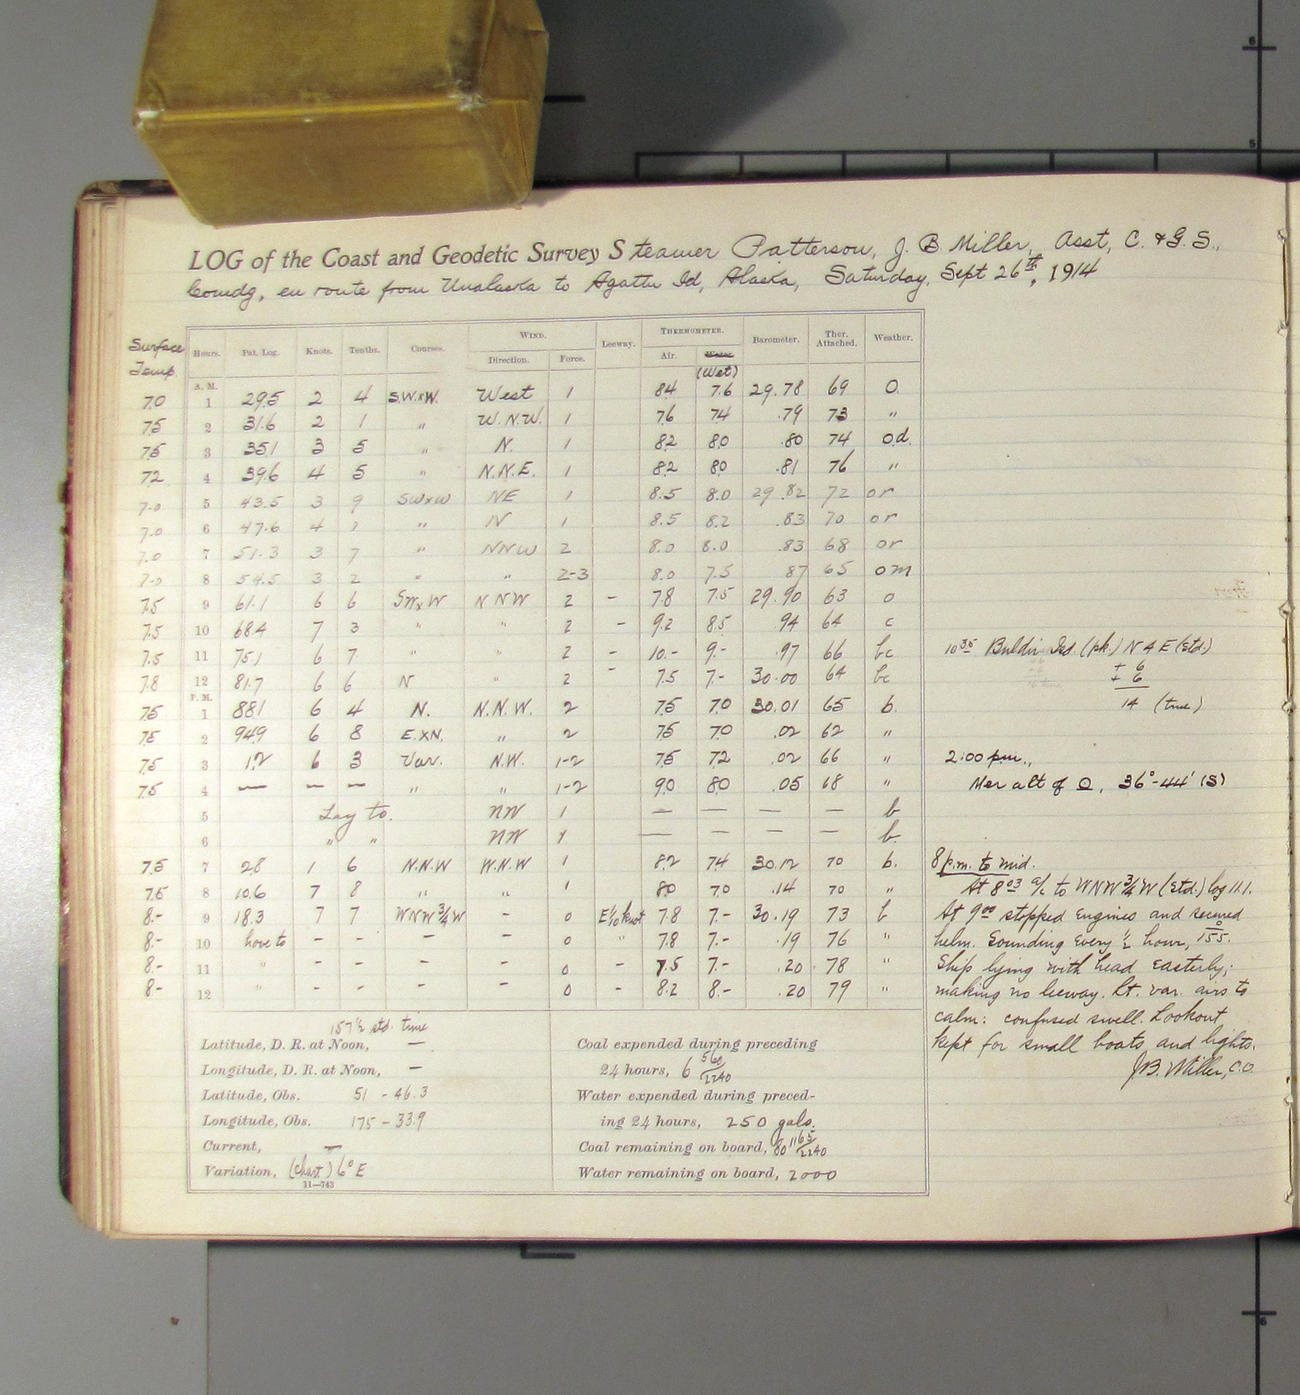 LOG of the Coast and Geodetic Survey Steamer Patterson, J. B Miller, Asst, C. & G. S.,
Comdg, en route from Unalaska to Agattu Id, Alaska, Saturday, Sept 26th, 1914
Surface Temp. Hours. Pat. Log. Knots. Tenths. Courses. WIND. Direction. Force. Leeway. THERMOMETER. Air. Water. (Wet) Barometer. Ther. Attached. Weather.
A. M.
70 1 29.5 2 4 S.W.xW. West 1 84 7.6 29.78 69 O.
75 2 31.6 2 1 " W.N.W. 1 76 74 .79 73 "
75 3 35.1 3 5 " N. 1 82 80 .80 74 o.d.
72 4 39.6 4 5 " N.N.E. 1 82 80 .81 76 "
7.0 5 43.5 3 9 SWxW NE 1 8.5 8.0 29.82 72 or
7.0 6 47.6 4 1 " N 1 8.5 8.2 .83 70 or
7.0 7 51.3 3 7 " NNW 2 8.0 8.0 .83 68 or
7.0 8 54.5 3 2 " " 2-3 8.0 7.5 87 65 om
7.5 9 61.1 6 6 SWxW NNW 2 - 78 7.5 29.90 63 o
7.5 10 68.4 7 3 " " 2 - 9.2 8.5 .94 64 c
7.5 11 75.1 6 7 " " 2 - 10.- 9.- .97 66 bc
7.8 12 81.7 6 6 N " 2 - 7.5 7.- 30.00 64 bc
P. M.
75 1 88.1 6 4 N. N.N.W. 2 75 70 30.01 65 b.
75 2 94.9 6 8 E.XN. " 2 75 70 .02 62 "
75 3 1.2 6 3 Var. N.W. 1-2 75 72 .02 66 "
75 4 — — — " " 1-2 90 80 .05 68 "
5 Lay to. NW 1 — — — — b
6 " " NW 1 — — — — b.
75 7 2.8 1 6 N.N.W W.N.W 1 82 74 30.12 70 b.
75 8 10.6 7 8 " " 1 80 7.0 .14 70 "
8.- 9 18.3 7 7 WNW 3/4 W - 0 E 1/10 knot 7.8 7.- 30.19 73 b
8.- 10 hove to - - - - 0 " 7.8 7.- .19 76 "
8.- 11 " - - - - 0 - 7.5 7.- .20 78 "
8- 12 " - - - - 0 - 8.2 8.- .20 79 "
10 35 Buldir Isd. (pk.) N 4 E (std.)
+ 6
14 (true)
2:00 p.m.,
Mer alt of O, 36°-44' (S)
8 p.m. to mid.
At 8 03 c/c to WNW 3/4 W (std.) log 11.1.
At 9 00 stopped engines and secured
helm. Sounding every 1/2 hour, 155.
Ship lying with head easterly;
making no leeway. Lt. var. airs to
calm: confused swell. Lookout
kept for small boats and lights.
J.B. Miller, C.O.
157 1/2 std. time
Latitude, D. R. at Noon, —
Longitude, D. R. at Noon, —
Latitude, Obs. 51 - 46.3
Longitude, Obs. 175 - 33.9
Current, —
Variation, (chart) 6° E
11—743
Coal expended during preceding
24 hours, 6 560/2240
Water expended during preced-
ing 24 hours, 250 gals.
Coal remaining on board, 80 1165/2240
Water remaining on board, 2000